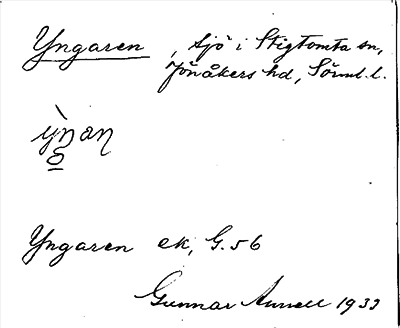 Yngaren, sjö i Stigtomta sn,
Jönåkers hd, Sörml. l.
Yngaren ek, G. 56
Gunnar 1933